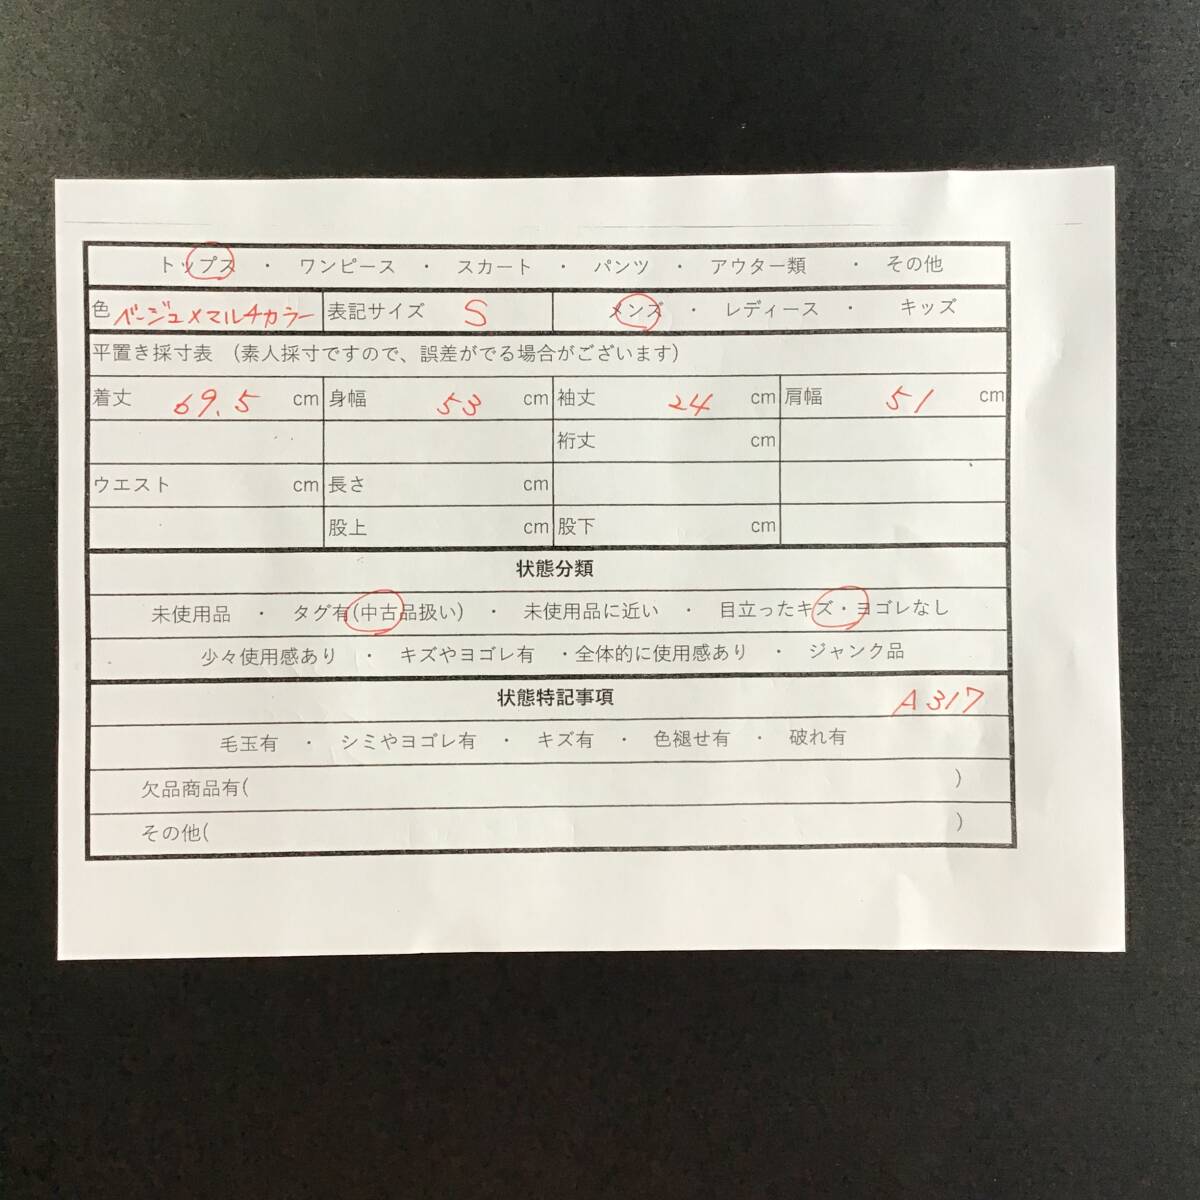 トップス ・ ワンピース ・ スカート ・ パンツ ・ アウター類 ・ その他
色 ベージュ×マルチカラー 表記サイズ S メンズ ・ レディース ・ キッズ
平置き採寸表 （素人採寸ですので、誤差がでる場合がございます）
着丈 69.5 cm 身幅 53 cm 袖丈 24 cm 肩幅 51 cm
裄丈 cm
ウエスト cm 長さ cm
股上 cm 股下 cm
状態分類
未使用品 ・ タグ有(中古品扱い) ・ 未使用品に近い ・ 目立ったキズ・ヨゴレなし
少々使用感あり ・ キズやヨゴレ有 ・全体的に使用感あり ・ ジャンク品
状態特記事項 A317
毛玉有 ・ シミやヨゴレ有 ・ キズ有 ・ 色褪せ有 ・ 破れ有
欠品商品有( )
その他( )